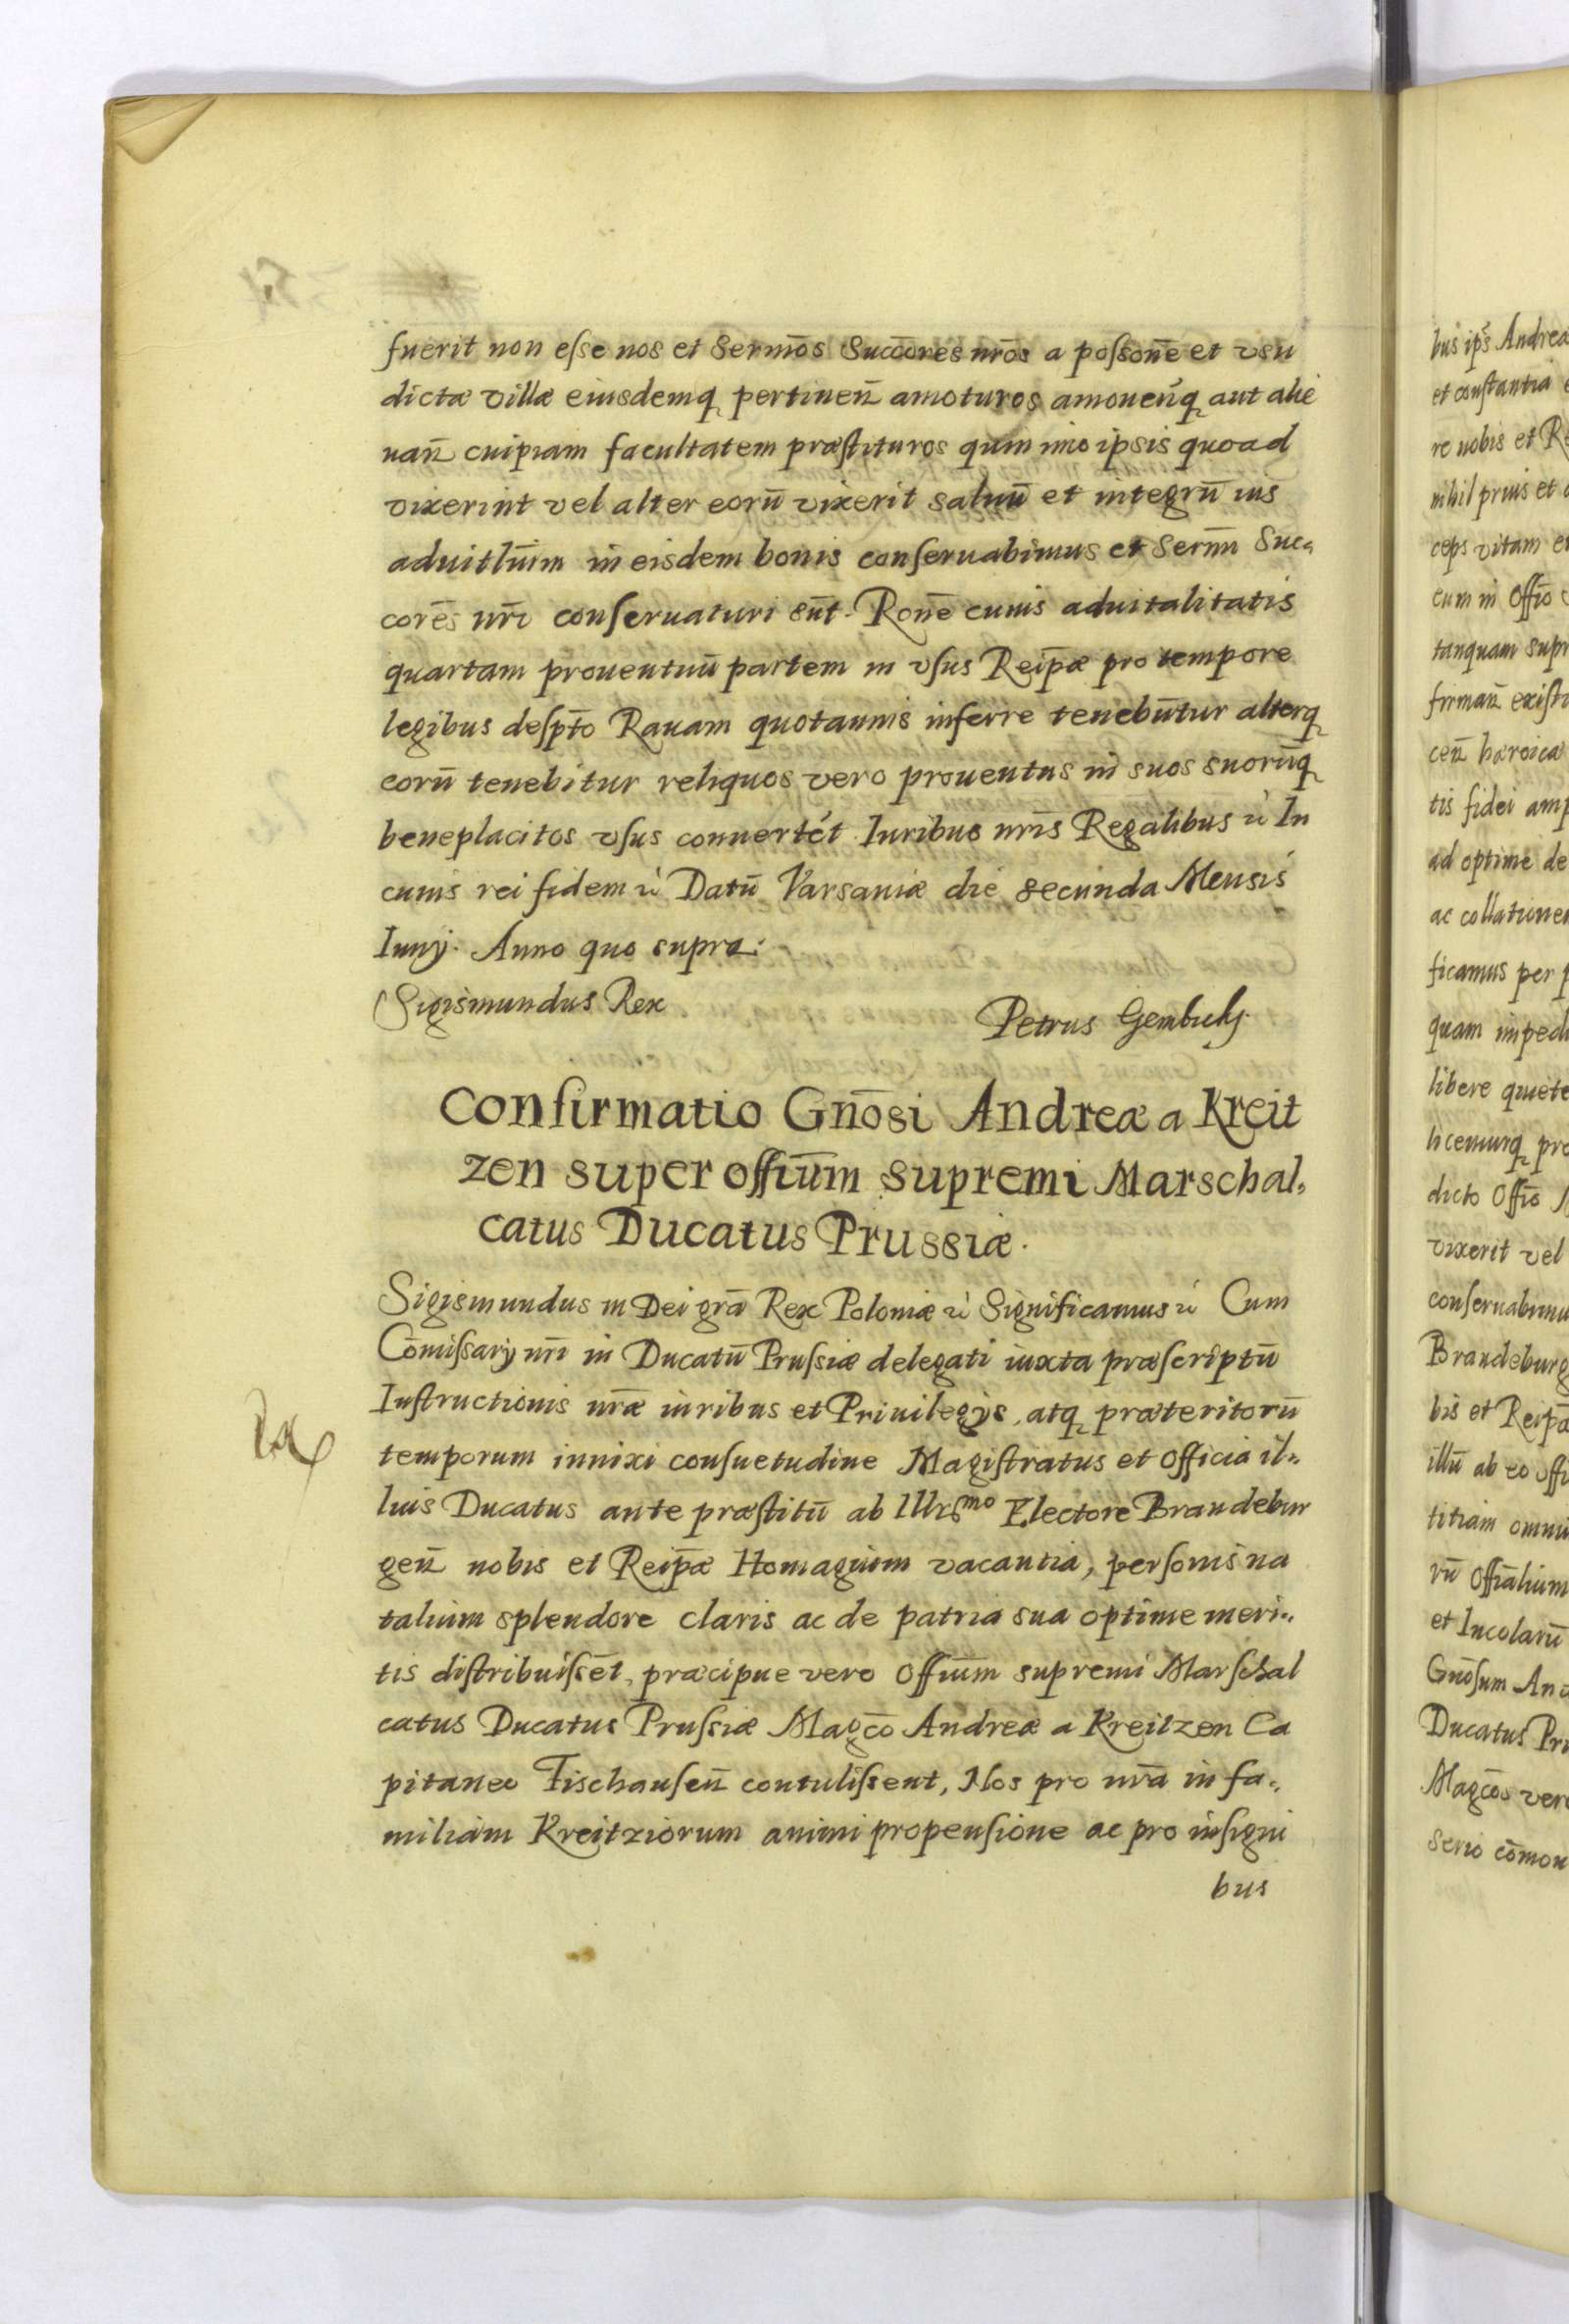 fuerit non eſse nos et Serm̄os Succ̄ores nr̄os a poſson̄e et vsu
dictæ villæ eiusdemq pertinen̄ amoturos amouen̄q aut alie
nan̄ cuipiam facultatem præſtituros quin imo ipsis quoad
vixerint vel alter eorū vixerit saluū et integrū ius
aduitlīum in eisdem bonis conſeruabimus et Serm̄i Suc
corēs nr̄i conſeruaturi sūt. Ron̄e cuius aduitalitatis
quartam prouentuū partem in vſus Reip̄æ pro tempore
legibus deſpt̄o Rauam quotannis inferre tenebūtur alterq
eorū tenebitur reliquos vero prouentus in suos suorūq
beneplacitos vſus conuertēt Iuribus nr̄is Regalibus ⁊c̀ In
cuius rei fidem ⁊c̀ Datū Varsauiæ die secunda Mensis
Iunÿ. Anno quo supra.
Sigismundus Rex
Petrus Gembicky
Confirmatio Gn̄osi Andreæ a Kreit
zen super offiūm supremi Marschal,
catus Ducatus Prussiæ.
Sigismundus III Dei grā Rex Poloniæ ⁊c̀ Significamus ⁊c̀ Cum
Cōmiſsarÿ nr̄i in Ducatū Pruſsiæ delegati iuxta præſcriptū
Inſtructionis nr̄æ iuribus et Priuilegÿs, atq præteritorū
temporum innixi conſuetudine Magiſtratus et officia il„
lius Ducatus ante præſtitū ab Illrs̄mo Electore Brandebur
gen̄ nobis et Reip̄æ Homagium vacantia, perſonis na
talium splendore claris ac de patria sua optime meri„
tis diſtribuiſsēt, præcipue vero offiūm supremi Marſchal
catus Ducatus Pruſsiæ Magc̄o Andreæ a Kreitzen Ca
pitaneo Fischauſen̄ contuliſsent, Nos pro nr̄a in fa„
miliam Kreitziorum animi propenſione ac pro inſigni
bus
bus ips̄ Andrea
et conſtantia
re nobis et R
nihil prius et
ceps vitam
eum in Offīo
tanquam supr
firman̄ exiſt
cen̄ hæroica
tis fidei amp
ad optime de
ac collatione
ficamus per p
quam impedi
libere quiete
licemurq pro
dicto Offīo M
vixerit vel
conſeruabimu
Brandeburg
bis et Reip̄æ
illū ab eo offi
titiam omni
rū Offīalium
et Incolarū
Gn̄oſum And
Ducatus Pr
Magc̄os vero
serio cōmon